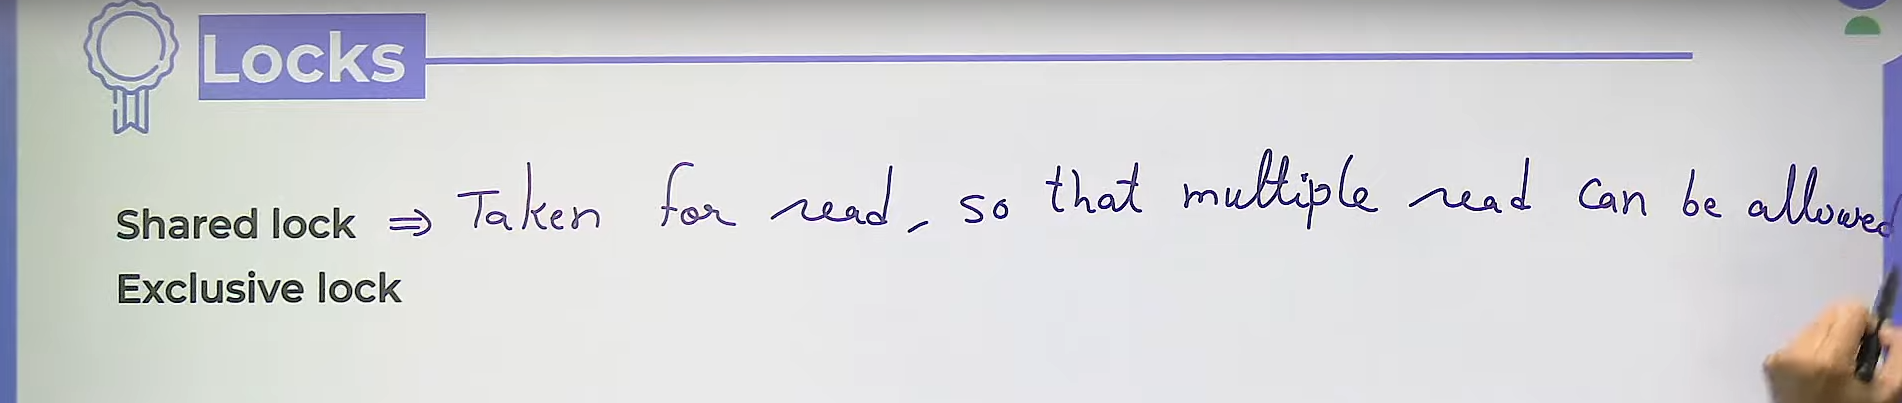 Locks
Shared lock ⇒ Taken for read, so that multiple read can be allowed
Exclusive lock